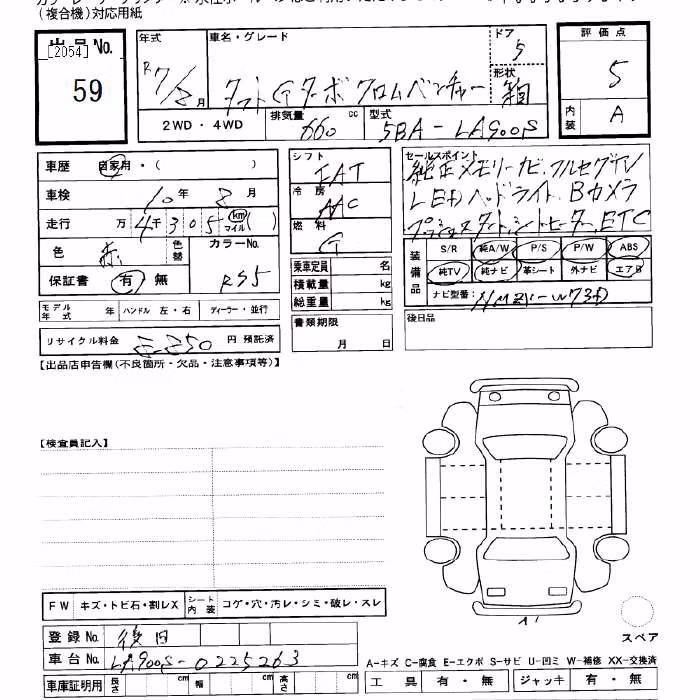 (複合機)対応用紙
出品 No.
[2054]
59
年式
R7/2月
車名・グレード
タフト Gターボ クロムベンチャー
ドア
5
形状
評価点
5
内装
A
2WD・4WD
排気量
660 cc
型式
5BA-LA900S
車歴 自家用・( )
車検 10年 2月
走行 万 4千 3 0 5 km マイル ( )
色 赤
色替
カラーNo.
R55
保証書 有 無
シフト
FAT
冷房
AAC
燃料
G
乗車定員 名
積載量 kg
総重量 kg
書類期限
月 日
セールスポイント
純正メモリーナビ、フルセグTV
LEDヘッドライト、Bカメラ
プッシュスタート、シートヒーター、ETC
装備品
S/R 純A/W P/S P/W ABS
純TV 純ナビ 革シート 外ナビ エアB
ナビ型番:
後日品
モデル年式 年 ハンドル 左・右 ディーラー・並行
リサイクル料金 円 預託済
【出品店申告欄(不良箇所・欠品・注意事項等)】
【検査員記入】
FW キズ・トビ石・割レX シート内装 コゲ・穴・汚レ・シミ・破レ・スレ
登録 No. 後日
車台 No. LA900S-0225263
車庫証明用 長さ cm 幅 cm 高さ cm
スペア
A-キズ C-腐食 E-エクボ S-サビ U-凹ミ W-補修 XX-交換済
工具 有・無 ジャッキ 有・無